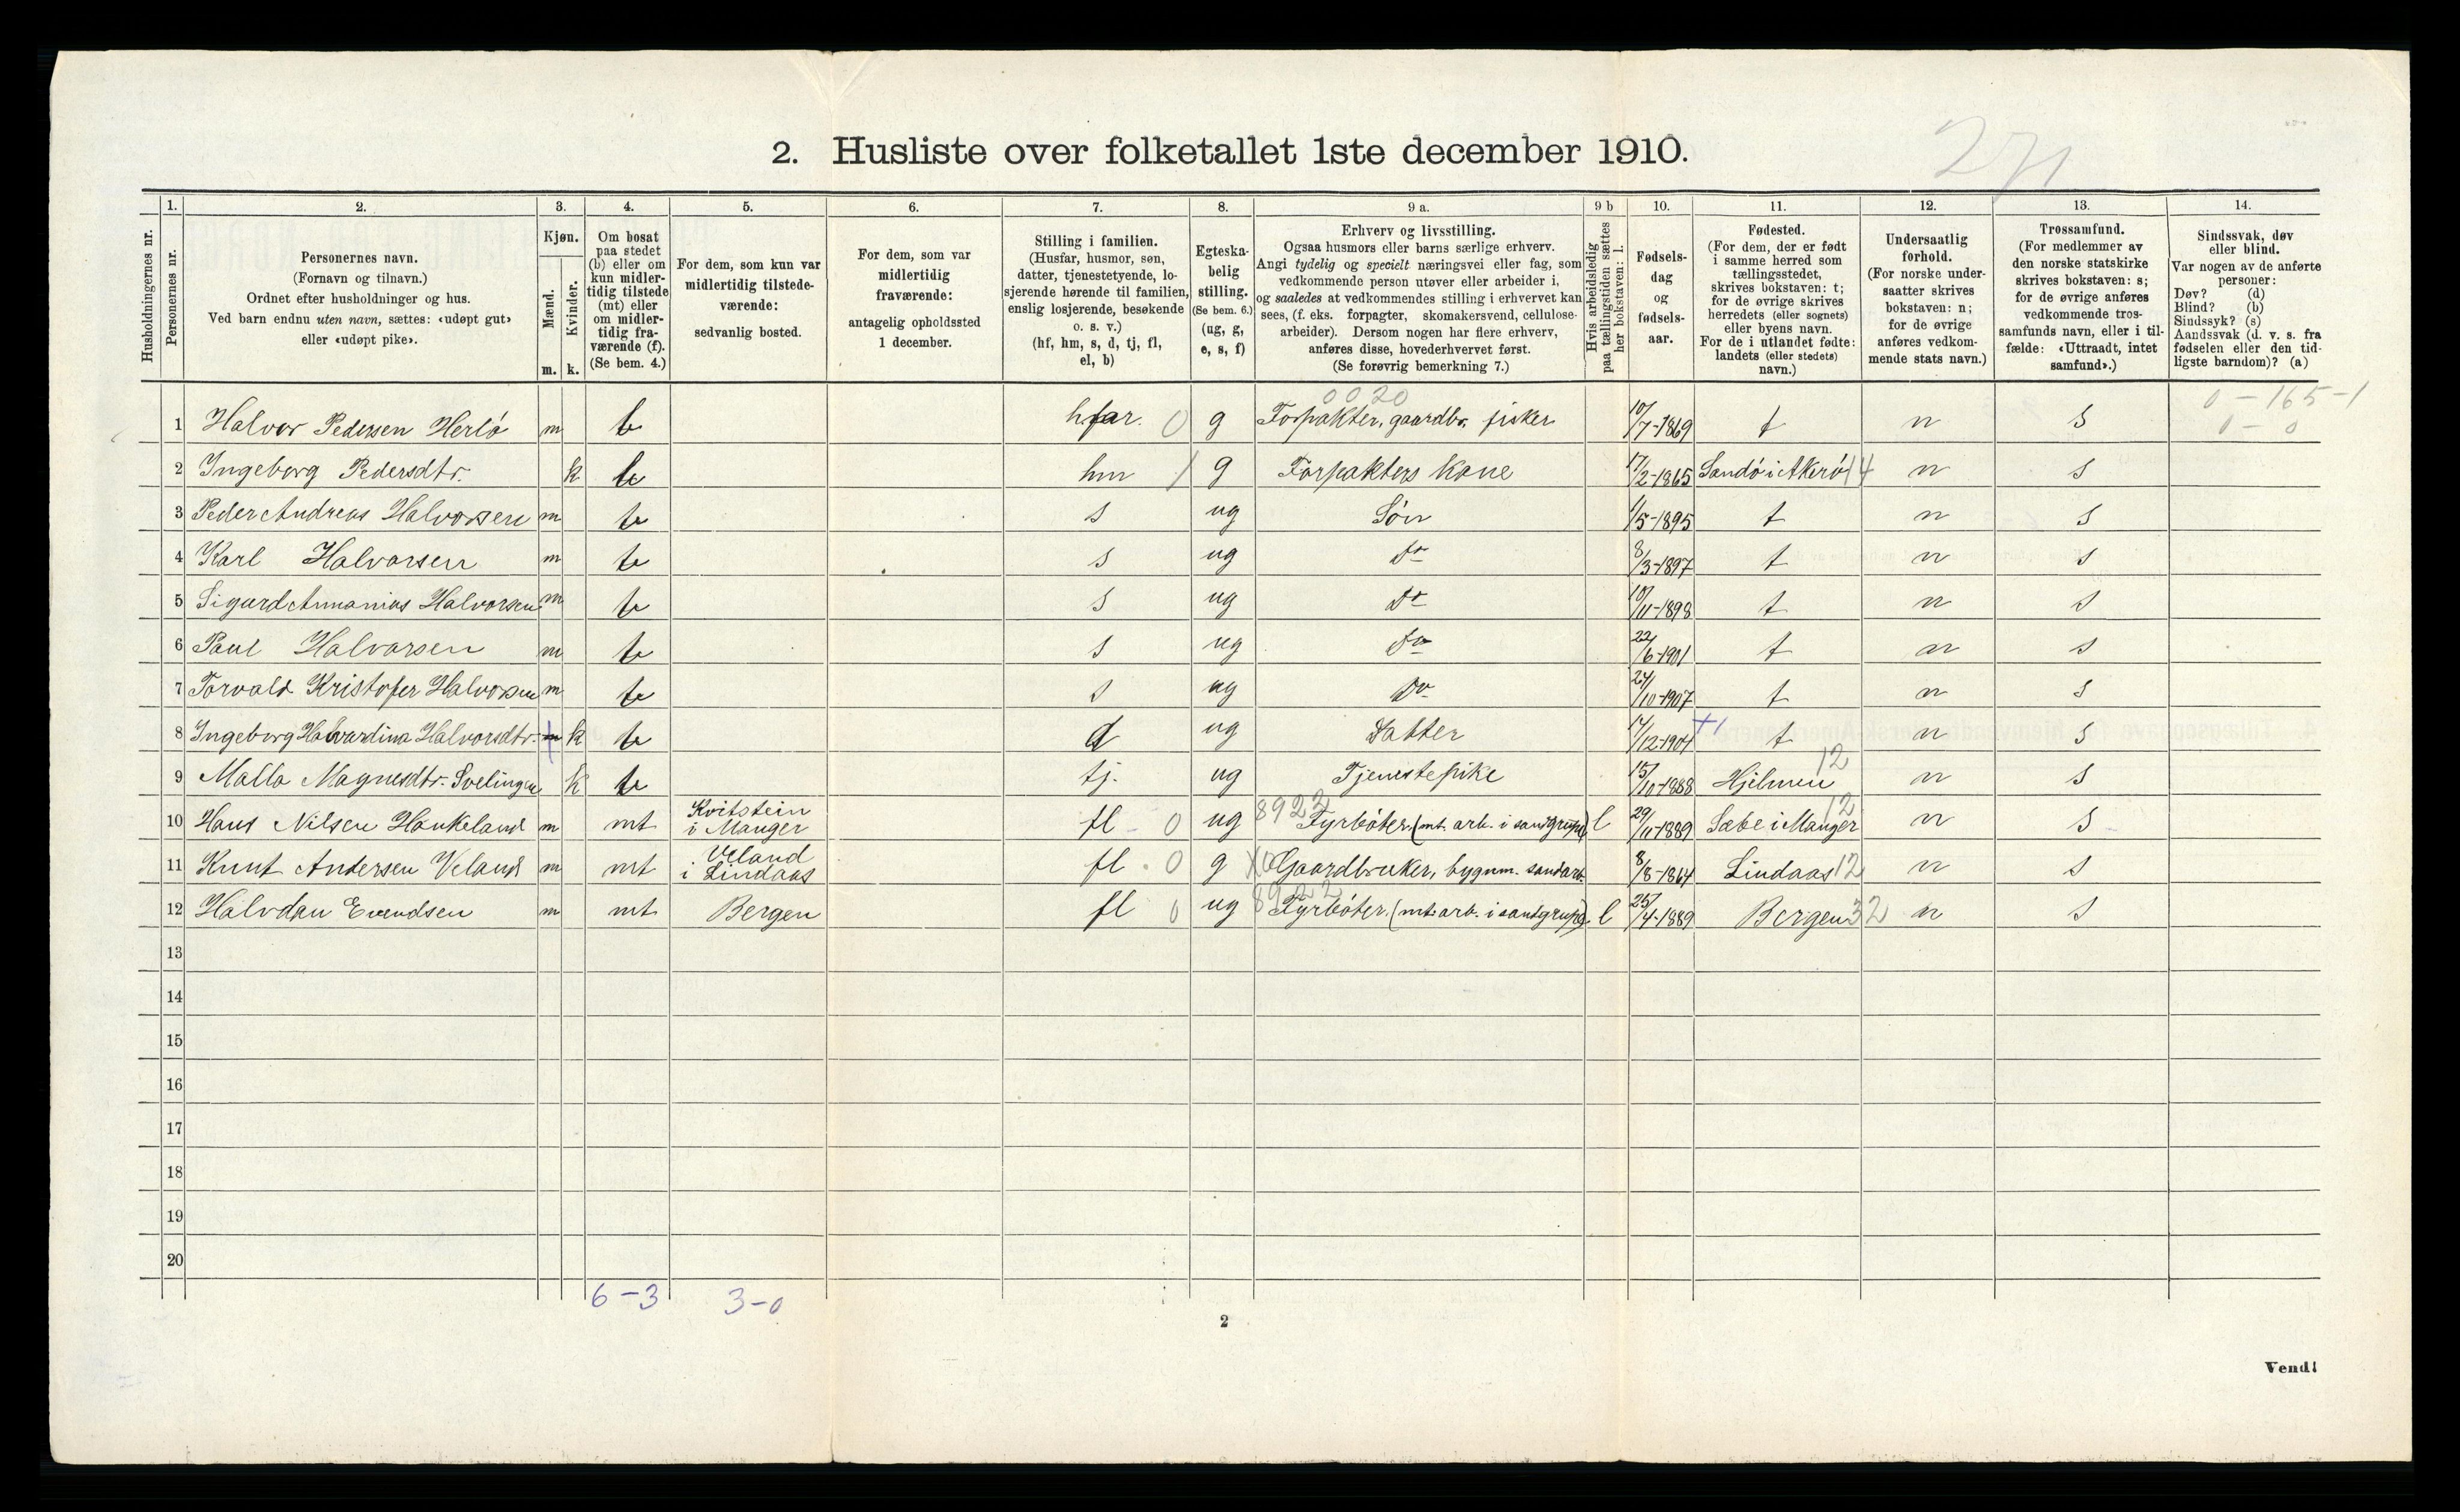 2. Husliste over folketallet 1ste december 1910.
Husholdningernes nr.
1. Personernes nr.
2. Personernes navn.
(Fornavn og tilnavn.)
Ordnet efter husholdninger og hus.
Ved barn endnu uten navn, sættes: «udøpt gut»
eller «udøpt pike».
3. Kjøn.
Mænd. Kvinder.
m. k.
4. Om bosat
paa stedet
(b) eller om
kun midler-
tidig tilstede
(mt) eller
om midler-
tidig fra-
værende (f).
(Se bem. 4.)
5. For dem, som kun var
midlertidig tilstede-
værende:
sedvanlig bosted.
6. For dem, som var
midlertidig
fraværende:
antagelig opholdssted
1 december.
7. Stilling i familien.
(Husfar, husmor, søn,
datter, tjenestetyende, lo-
sjerende hørende til familien,
enslig losjerende, besøkende
o. s. v.)
(hf, hm, s, d, tj, fl,
el, b)
8. Egteska-
belig
stilling.
(Se bem. 6.)
(ug, g,
e, s, f)
9 a. Erhverv og livsstilling.
Ogsaa husmors eller barns særlige erhverv.
Angi tydelig og specielt næringsvei eller fag, som
vedkommende person utøver eller arbeider i,
og saaledes at vedkommendes stilling i erhvervet kan
sees, (f. eks. forpagter, skomakersvend, cellulose-
arbeider). Dersom nogen har flere erhverv,
anføres disse, hovederhvervet først.
(Se forøvrig bemerkning 7.)
9 b Hvis arbeidsledig
paa tællingstiden sættes
her bokstaven: l.
10. Fødsels-
dag
og
fødsels-
aar.
11. Fødested.
(For dem, der er født
i samme herred som
tællingsstedet,
skrives bokstaven: t;
for de øvrige skrives
herredets (eller sognets)
eller byens navn.
For de i utlandet fødte:
landets (eller stedets)
navn.)
12. Undersaatlig
forhold.
(For norske under-
saatter skrives
bokstaven: n;
for de øvrige
anføres vedkom-
mende stats navn.)
13. Trossamfund.
(For medlemmer av
den norske statskirke
skrives bokstaven: s;
for de øvrige anføres
vedkommende tros-
samfunds navn, eller i til-
fælde: «Uttraadt, intet
samfund».)
14. Sindssvak, døv
eller blind.
Var nogen av de anførte
personer:
Døv? (d)
Blind? (b)
Sindssyk? (s)
Aandssvak (d. v. s. fra
fødselen eller den tid-
ligste barndom)? (a)
0020 0 - 165 - 1
1 Halvor Pedersen Herlö m b hfar. 0 g Forpakter, gaardbr. fisker 10/7-1869 t n s 0 - 0
2 Ingeborg Pedersdtr. k b hm 1 g Forpakters Kone 17/2-1865 Sandö i Akerö 14 n s
3 Peder Andreas Halvorsen m b s ug Sön 1/5-1895 t n s
4 Karl Halvorsen m b s ug Do 8/3-1897 t n s
5 Sigurd Annanias Halvorsen m b s ug Do 10/11-1898 t n s
6 Paul Halvorsen m b s ug Do 22/6-1901 t n s
7 Torvald Kristofer Halvorsen m b s ug Do 24/10-1907 t n s
8 Ingeborg Halvardina Halvorsdtr. k b d ug Datter 17/12-1904 t n s
9 Malla Magnesdtr. Svelingen k b tj. ug Tjenestepike 15/10-1888 Hjelmen 12 n s
10 Hans Nilsen Haukeland m mt Kvitstein i Manger fl - 0 ug 8922 Fyrböter (mt. arb. i sandgrube) l 29/11-1889 Sæbe i Manger 12 n s
11 Knut Andersen Veland m mt Veland i Lindaas fl. 0 g Gaardbruker, bygnm. sandarb. 8/8-1864 Lindaas 12 n s
12 Halvdan Evendsen m mt Bergen fl 0 ug 8922 Fyrböter. (mt. arb. i sandgrube). l 25/4-1889 Bergen 32 n s
13
14
15
16
17
18
19
20
6 - 3 3 - 0
2
Vend!